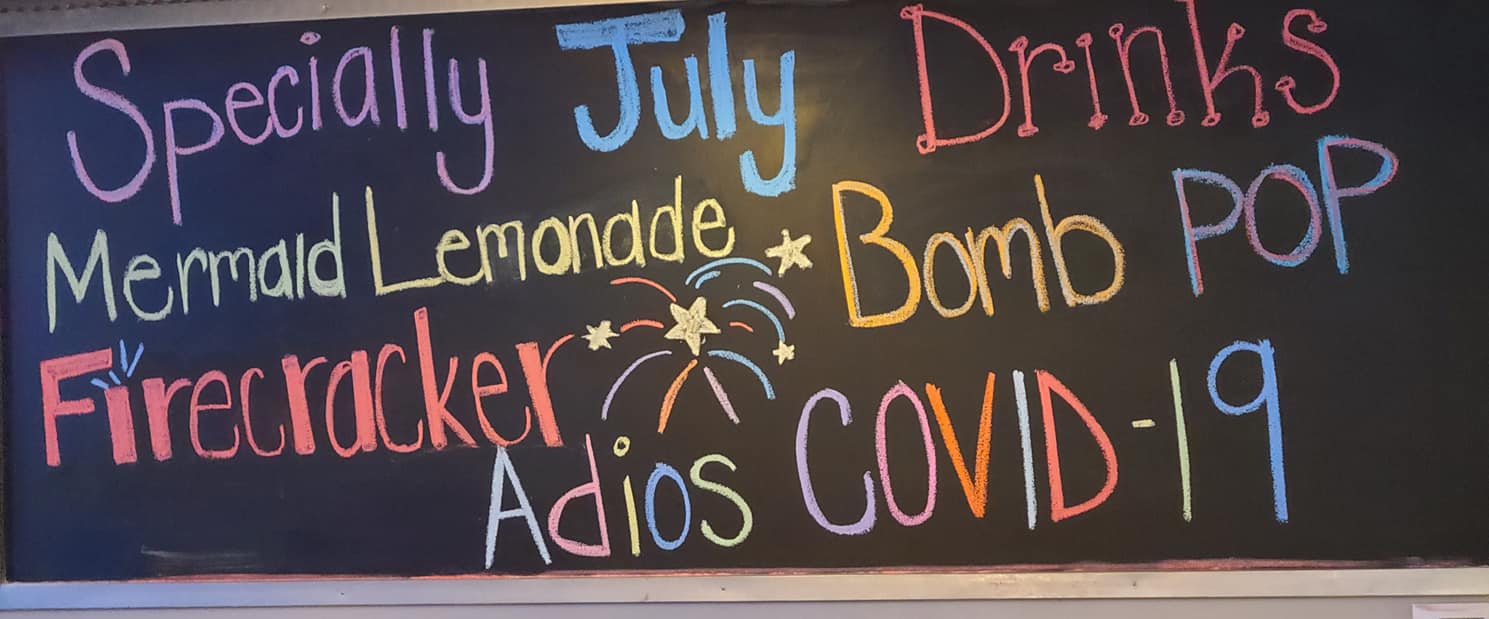 Specially July Drinks
Mermaid Lemonade Bomb POP
Firecracker
Adios COVID-19